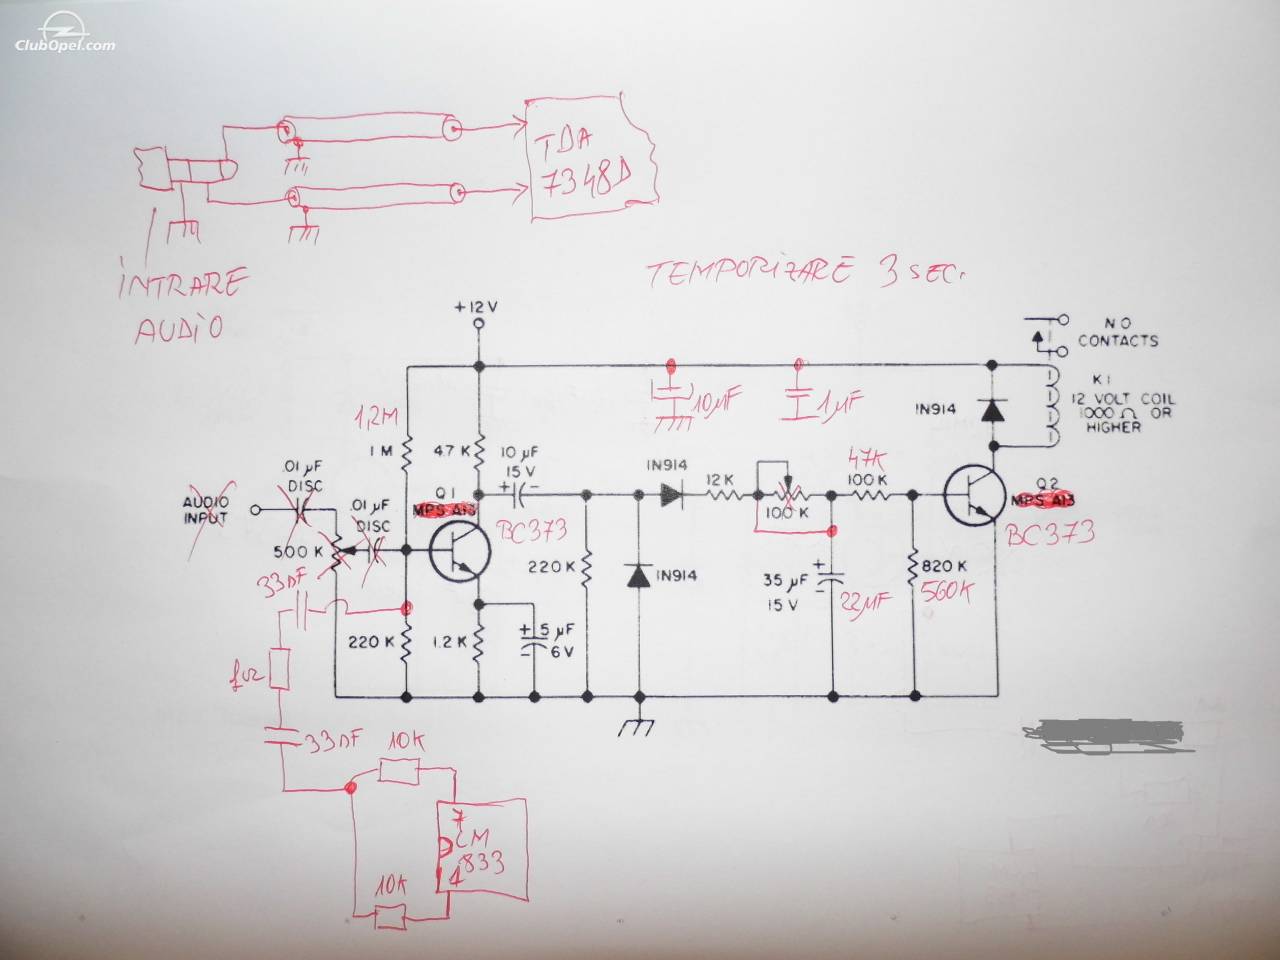 ClubOpel.com
TDA
7348D
INTRARE
AUDIO
TEMPORIZARE 3 SEC.
+12V
NO
CONTACTS
K1
12 VOLT COIL
1000 Ω OR
HIGHER
10µF
1µF
1N914
1,2M
1 M
4.7 K
10 µF
15 V
+ -
1N914
12 K
47K
100 K
100 K
.01 µF
DISC
AUDIO
INPUT
.01 µF
DISC
Q1
MPS A13
BC373
Q2
MPS A13
BC373
500 K
33nF
220 K
1N914
35 µF
15 V
+
-
22µF
820 K
560K
220 K
1.2 K
+ 5 µF
- 6V
33nF
10K
7
LM
833
1
10K